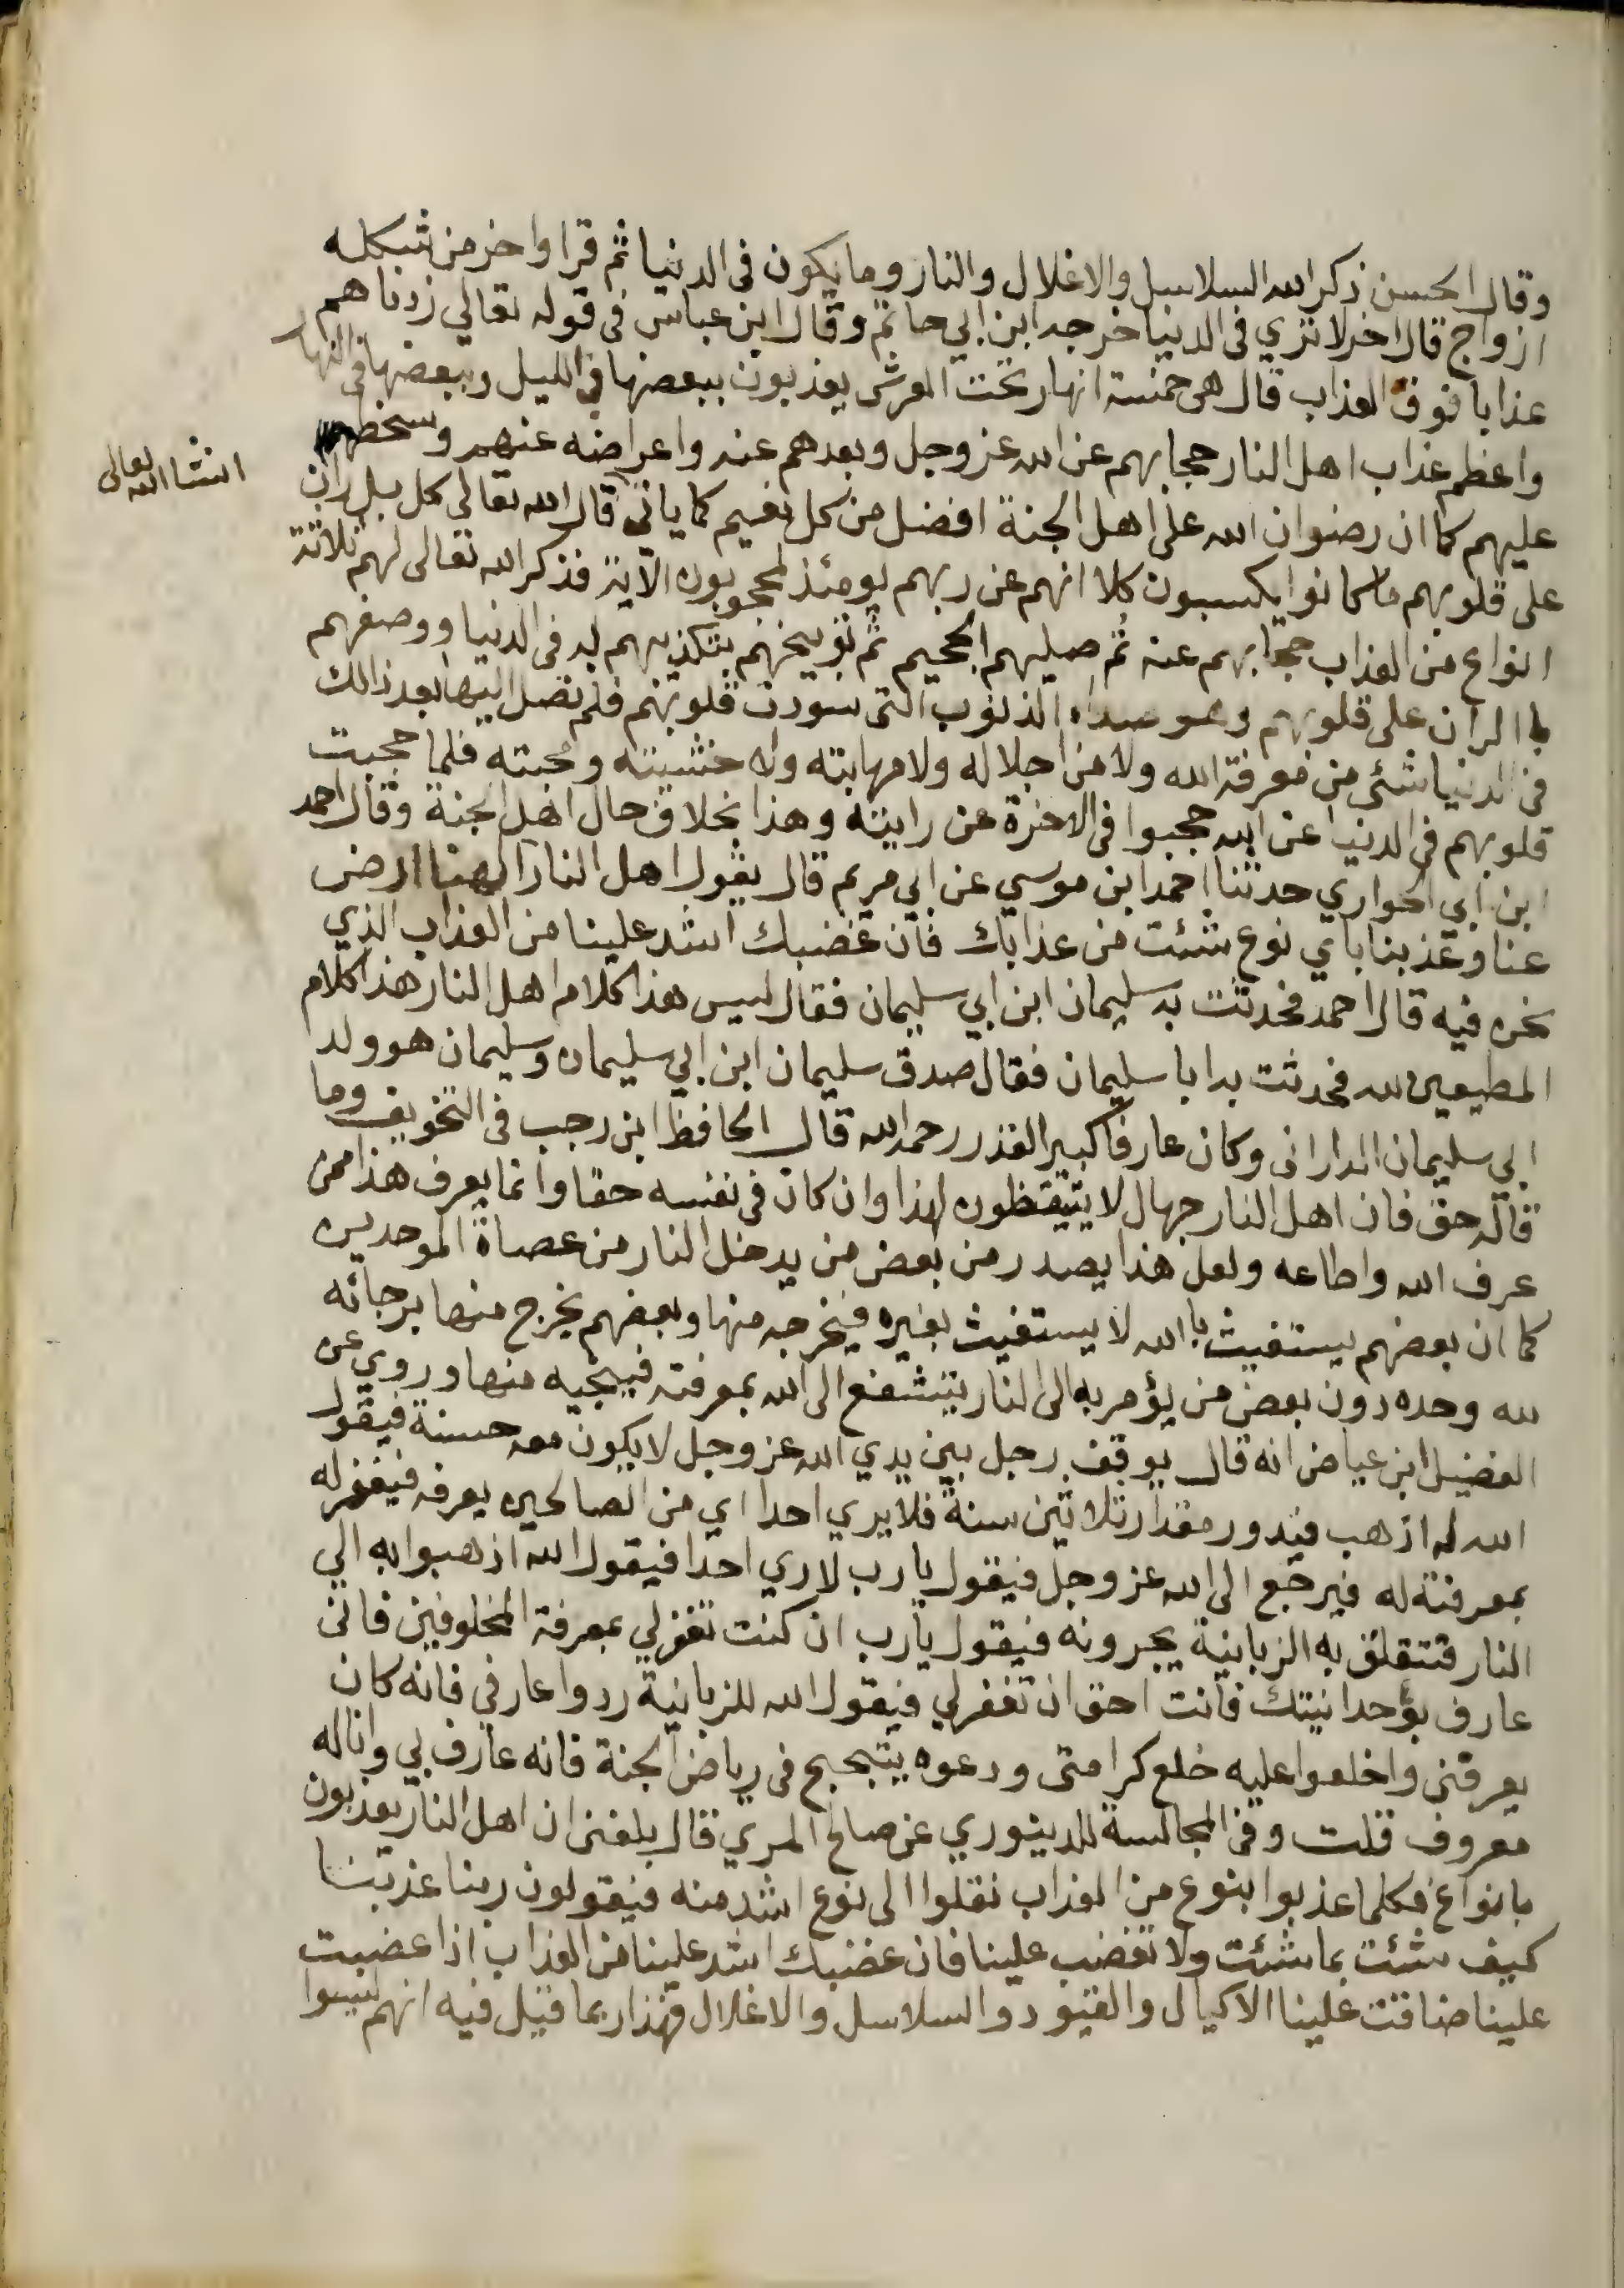 وقال الحسن ذكر الله السلاسل والاغلال والنار وما يكون في الدنيا ثم قرا واخر من شكله
ازواج قال اخر لا تري في الدنيا خرجه ابن ابي حاتم وقال ابن عباس في قوله تعالي زدناهم
عذابا فوق العذاب قال هي خمسة انهار تحت العرش يعذبون ببعضها في الليل وببعضها في النهار
واعظم عذاب اهل النار حجابهم عن الله عز وجل وبعدهم عنه واعراضه عنهم وسخطه
عليهم كما ان رضوان الله علي اهل الجنة افضل من كل نعيم كما ياتي قال الله تعالي كل بل ران
انشا الله تعالى
على قلوبهم ما كانوا يكسبون كلا انهم عن ربهم يومئذ لمحجوبون الآية فذكر الله تعالى لهم ثلاثة
انواع من العذاب حجابهم عنه ثم صليهم الجحيم ثم توبيخهم بتكذيبهم له في الدنيا ووصفهم
با الران على قلوبهم وهو صداء الذنوب التي سودت قلوبهم فلم تصل اليها بعد ذالك
في الدنيا شئي من معرفة الله ولا من اجلاله ولا مهابته ولا خشيته ومحبته فلما حجبت
قلوبهم في الدنيا عن الله حجبوا في الاخرة عن رايته وهذا بخلاف حال اهل الجنة وقال احمد
ابن ابي الحواري حدثنا احمد ابن موسي عن ابي مريم قال يقول اهل النار الهنا ارض
عنا وعذبنا باي نوع شئت من عذابك فان غضبك اشد علينا من العذاب الذي
نحن فيه قال احمد فحدثت به سليمان ابن ابي سليمان فقال ليس هذا كلام اهل النار هذا كلام
المطيعين لله فحدثت به ابا سليمان فقال صدق سليمان ابن ابي سليمان وسليمان هو ولد
ابي سليمان الداراني وكان عارفا كبير القدر رحمه الله قال الحافظ ابن رجب في التخويف وما
قاله حق فان اهل النار جهال لا يتيقظون لهذا وان كان في نفسه حقا وانما يعرف هذا من
عرف الله واطاعه ولعل هذا يصدر من بعض من يدخل النار من عصاة الموحدين
كما ان بعضهم يستغيث با الله لا يستغيث بغيره فيخرجه منها وبعضهم يخرج منها برجائه
لله وحده دون بعض من يؤمر به الى النار يتشفع الى الله بمعرفته فينجيه منها وروي عن
الفضيل ابن عياض انه قال يوقف رجل بين يدي الله عز وجل لا يكون معه حسنة فيقول
الله له اذهب فيدور مقدار ثلاثين سنة فلا يري احدا اي من الصالحين يعرفه فيغفر له
بمعرفته له فيرجع الى الله عز وجل فيقول يا رب لا ري احدا فيقول الله اذهبوا به الي
النار فتتعلق به الزبانية يجرونه فيقول يا رب ان كنت تغفر لي بمعرفة المخلوقين فاني
عارف بوحدانيتك فانت احق ان تغفر لي فيقول الله للزبانية ردوا عارفي فانه كان
يعرفني واخلعوا عليه خلع كرامتي ودعوه يتبحبح في رياض الجنة فانه عارف بي وانا له
معروف قلت وفي المجالسة للدينوري عن صالح المري قال بلغني ان اهل النار يعذبون
بانواع فكلما عذبوا بنوع من العذاب نقلوا الى نوع اشد منه فيقولون ربنا عذبنا
كيف شئت بما شئت ولا تغضب علينا فان غضبك اشد علينا من العذاب اذا غضبت
علينا ضاقت علينا الاكيال والقيود والسلاسل والاغلال فهذا ربما قيل فيه انهم ليسوا